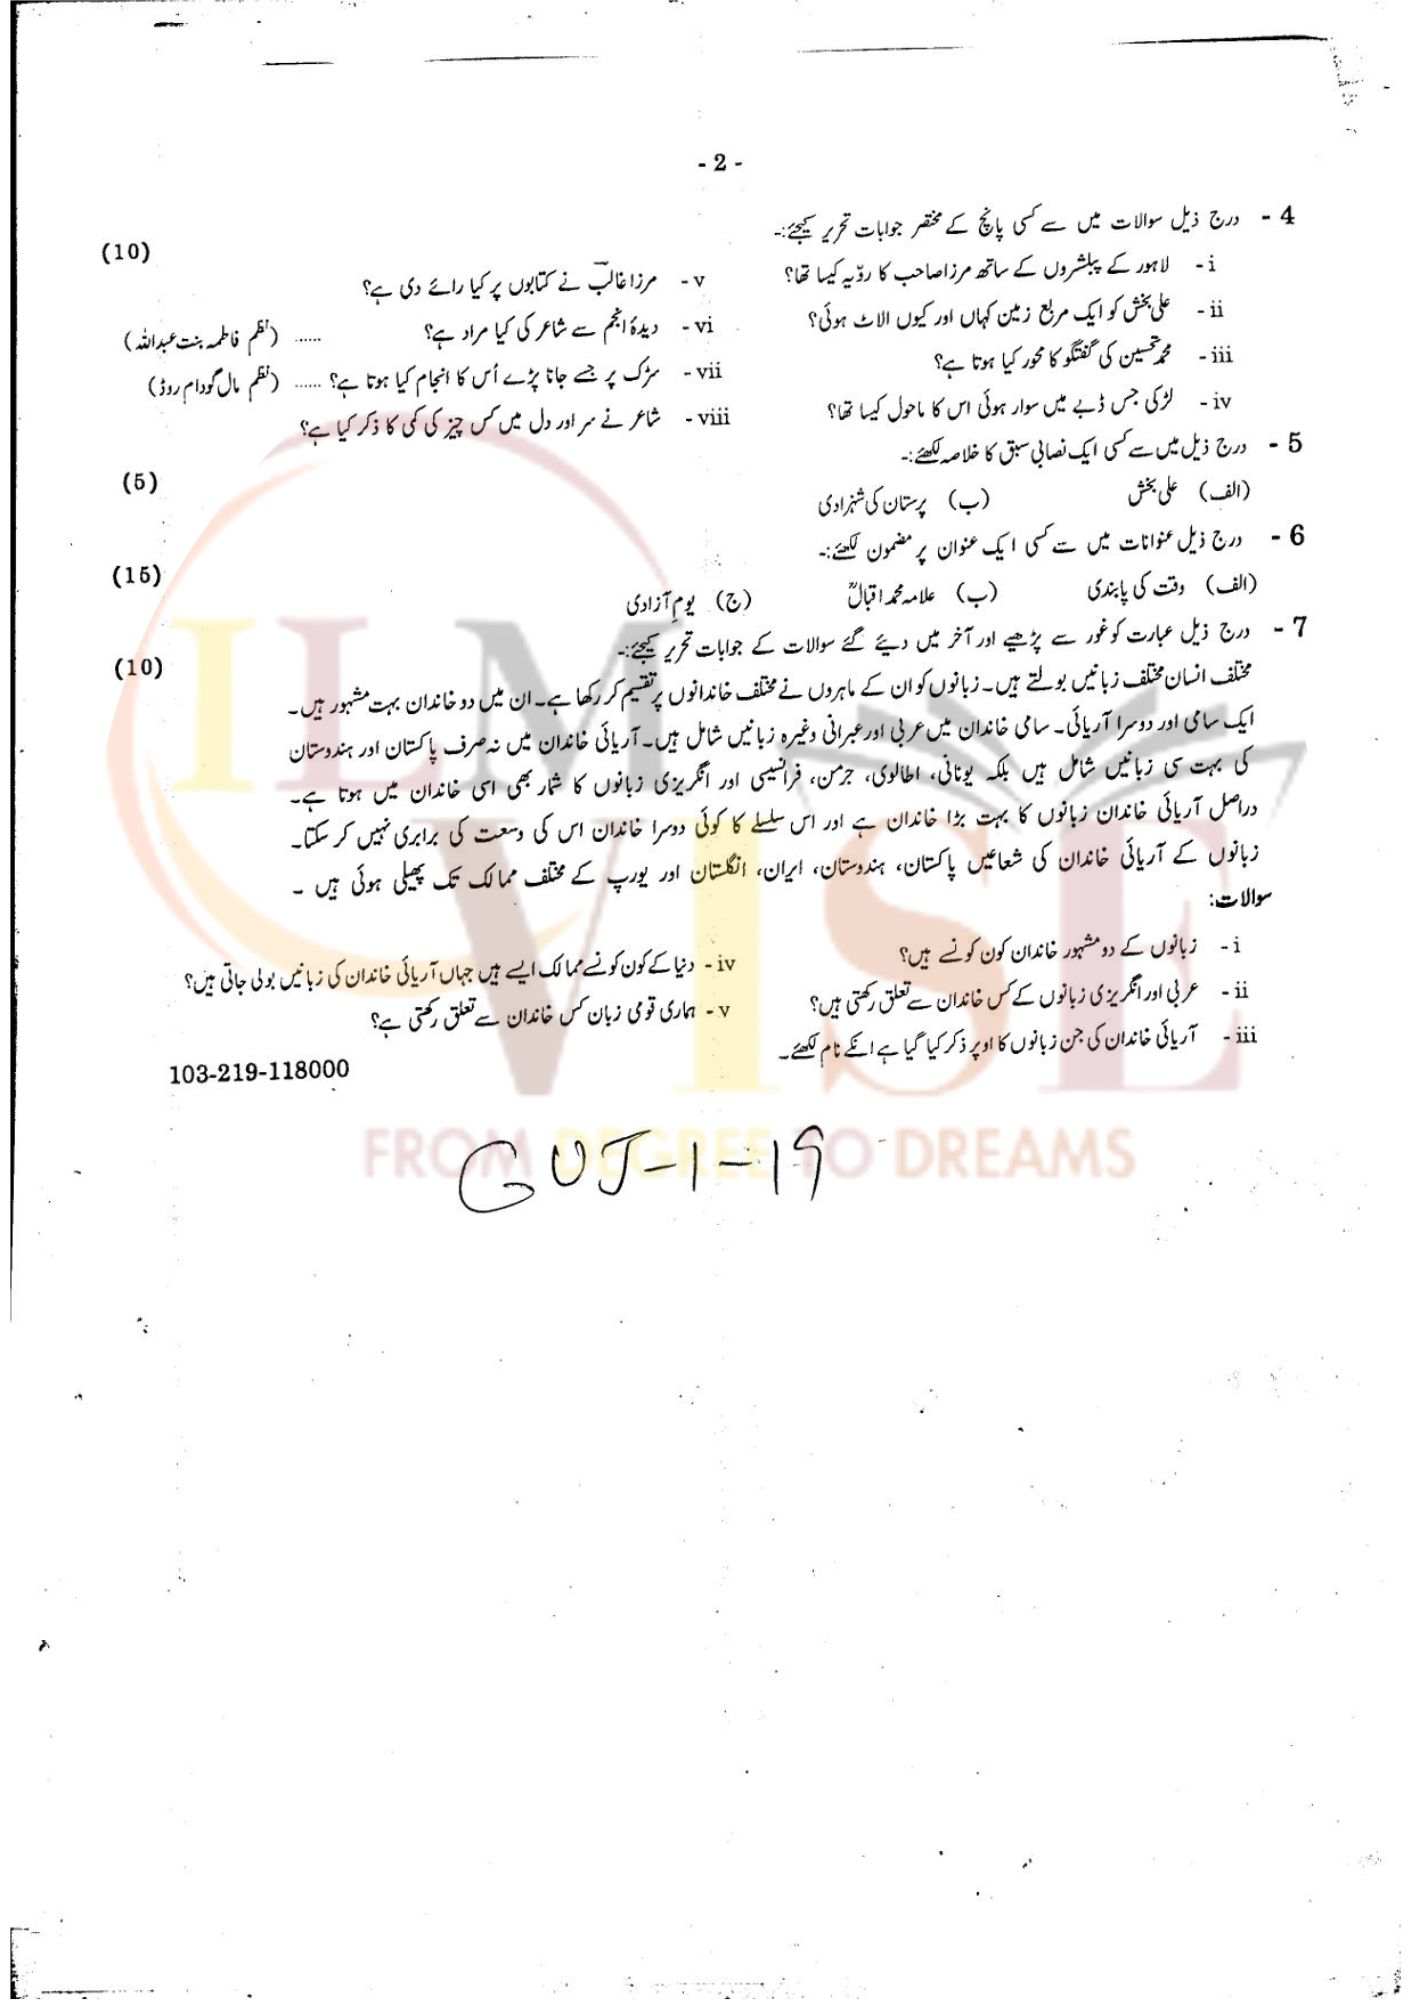 - 2 -
4 - درج ذیل سوالات میں سے کسی پانچ کے مختصر جوابات تحریر کیجئے:-
(10)
i - لاہور کے پبلشروں کے ساتھ مرزا صاحب کا رویّہ کیسا تھا؟
v - مرزا غالبؔ نے کتابوں پر کیا رائے دی ہے؟
ii - علی بخش کو ایک مربع زمین کہاں اور کیوں الاٹ ہوئی؟
vi - دیدۂ انجم سے شاعر کی کیا مراد ہے؟ ...... (نظم فاطمہ بنت عبداللہ)
iii - محمد تحسین کی گفتگو کا محور کیا ہوتا ہے؟
vii - سڑک پر جسے جانا پڑے اُس کا انجام کیا ہوتا ہے؟ ...... (نظم مال گودام روڈ)
iv - لڑکی جس ڈبے میں سوار ہوئی اس کا ماحول کیسا تھا؟
viii - شاعر نے سر اور دل میں کس چیز کی کمی کا ذکر کیا ہے؟
5 - درج ذیل میں سے کسی ایک نصابی سبق کا خلاصہ لکھئے:-
(5)
(الف) علی بخش (ب) پرستان کی شہزادی
6 - درج ذیل عنوانات میں سے کسی ایک عنوان پر مضمون لکھئے:-
(15)
(الف) وقت کی پابندی (ب) علامہ محمد اقبالؒ (ج) یومِ آزادی
7 - درج ذیل عبارت کو غور سے پڑھیے اور آخر میں دیئے گئے سوالات کے جوابات تحریر کیجئے:-
(10)
مختلف انسان مختلف زبانیں بولتے ہیں۔ زبانوں کو ان کے ماہروں نے مختلف خاندانوں پر تقسیم کر رکھا ہے۔ ان میں دو خاندان بہت مشہور ہیں۔
ایک سامی اور دوسرا آریائی۔ سامی خاندان میں عربی اور عبرانی وغیرہ زبانیں شامل ہیں۔ آریائی خاندان میں نہ صرف پاکستان اور ہندوستان
کی بہت سی زبانیں شامل ہیں بلکہ یونانی، اطالوی، جرمن، فرانسیسی اور انگریزی زبانوں کا شمار بھی اسی خاندان میں ہوتا ہے۔
دراصل آریائی خاندان زبانوں کا بہت بڑا خاندان ہے اور اس سلسلے کا کوئی دوسرا خاندان اس کی وسعت کی برابری نہیں کر سکتا۔
زبانوں کے آریائی خاندان کی شعاعیں پاکستان، ہندوستان، ایران، انگلستان اور یورپ کے مختلف ممالک تک پھیلی ہوئی ہیں ۔
سوالات:
i - زبانوں کے دو مشہور خاندان کون کونسے ہیں؟
iv - دنیا کے کون کونسے ممالک ایسے ہیں جہاں آریائی خاندان کی زبانیں بولی جاتی ہیں؟
ii - عربی اور انگریزی زبانوں کے کس خاندان سے تعلق رکھتی ہیں؟
v - ہماری قومی زبان کس خاندان سے تعلق رکھتی ہے؟
iii - آریائی خاندان کی جن زبانوں کا اوپر ذکر کیا گیا ہے انکے نام لکھئے۔
103-219-118000
GUJ-1-19
ILM
VISE
FROM DEGREE TO DREAMS